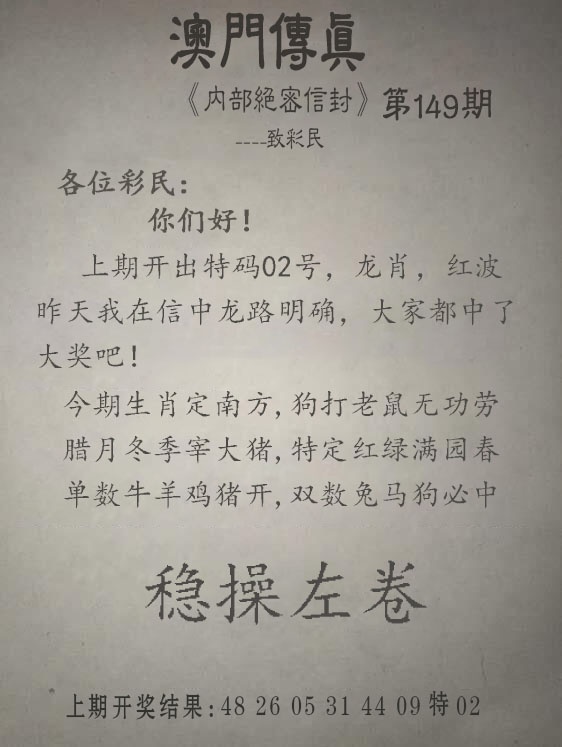 澳門傳眞
《内部絕密信封》第149期
----致彩民
各位彩民:
你们好!
上期开出特码02号，龙肖，红波
昨天我在信中龙路明确，大家都中了
大奖吧!
今期生肖定南方,狗打老鼠无功劳
腊月冬季宰大猪,特定红绿满园春
单数牛羊鸡猪开,双数兔马狗必中
稳操左卷
上期开奖结果:48 26 05 31 44 09 特 02